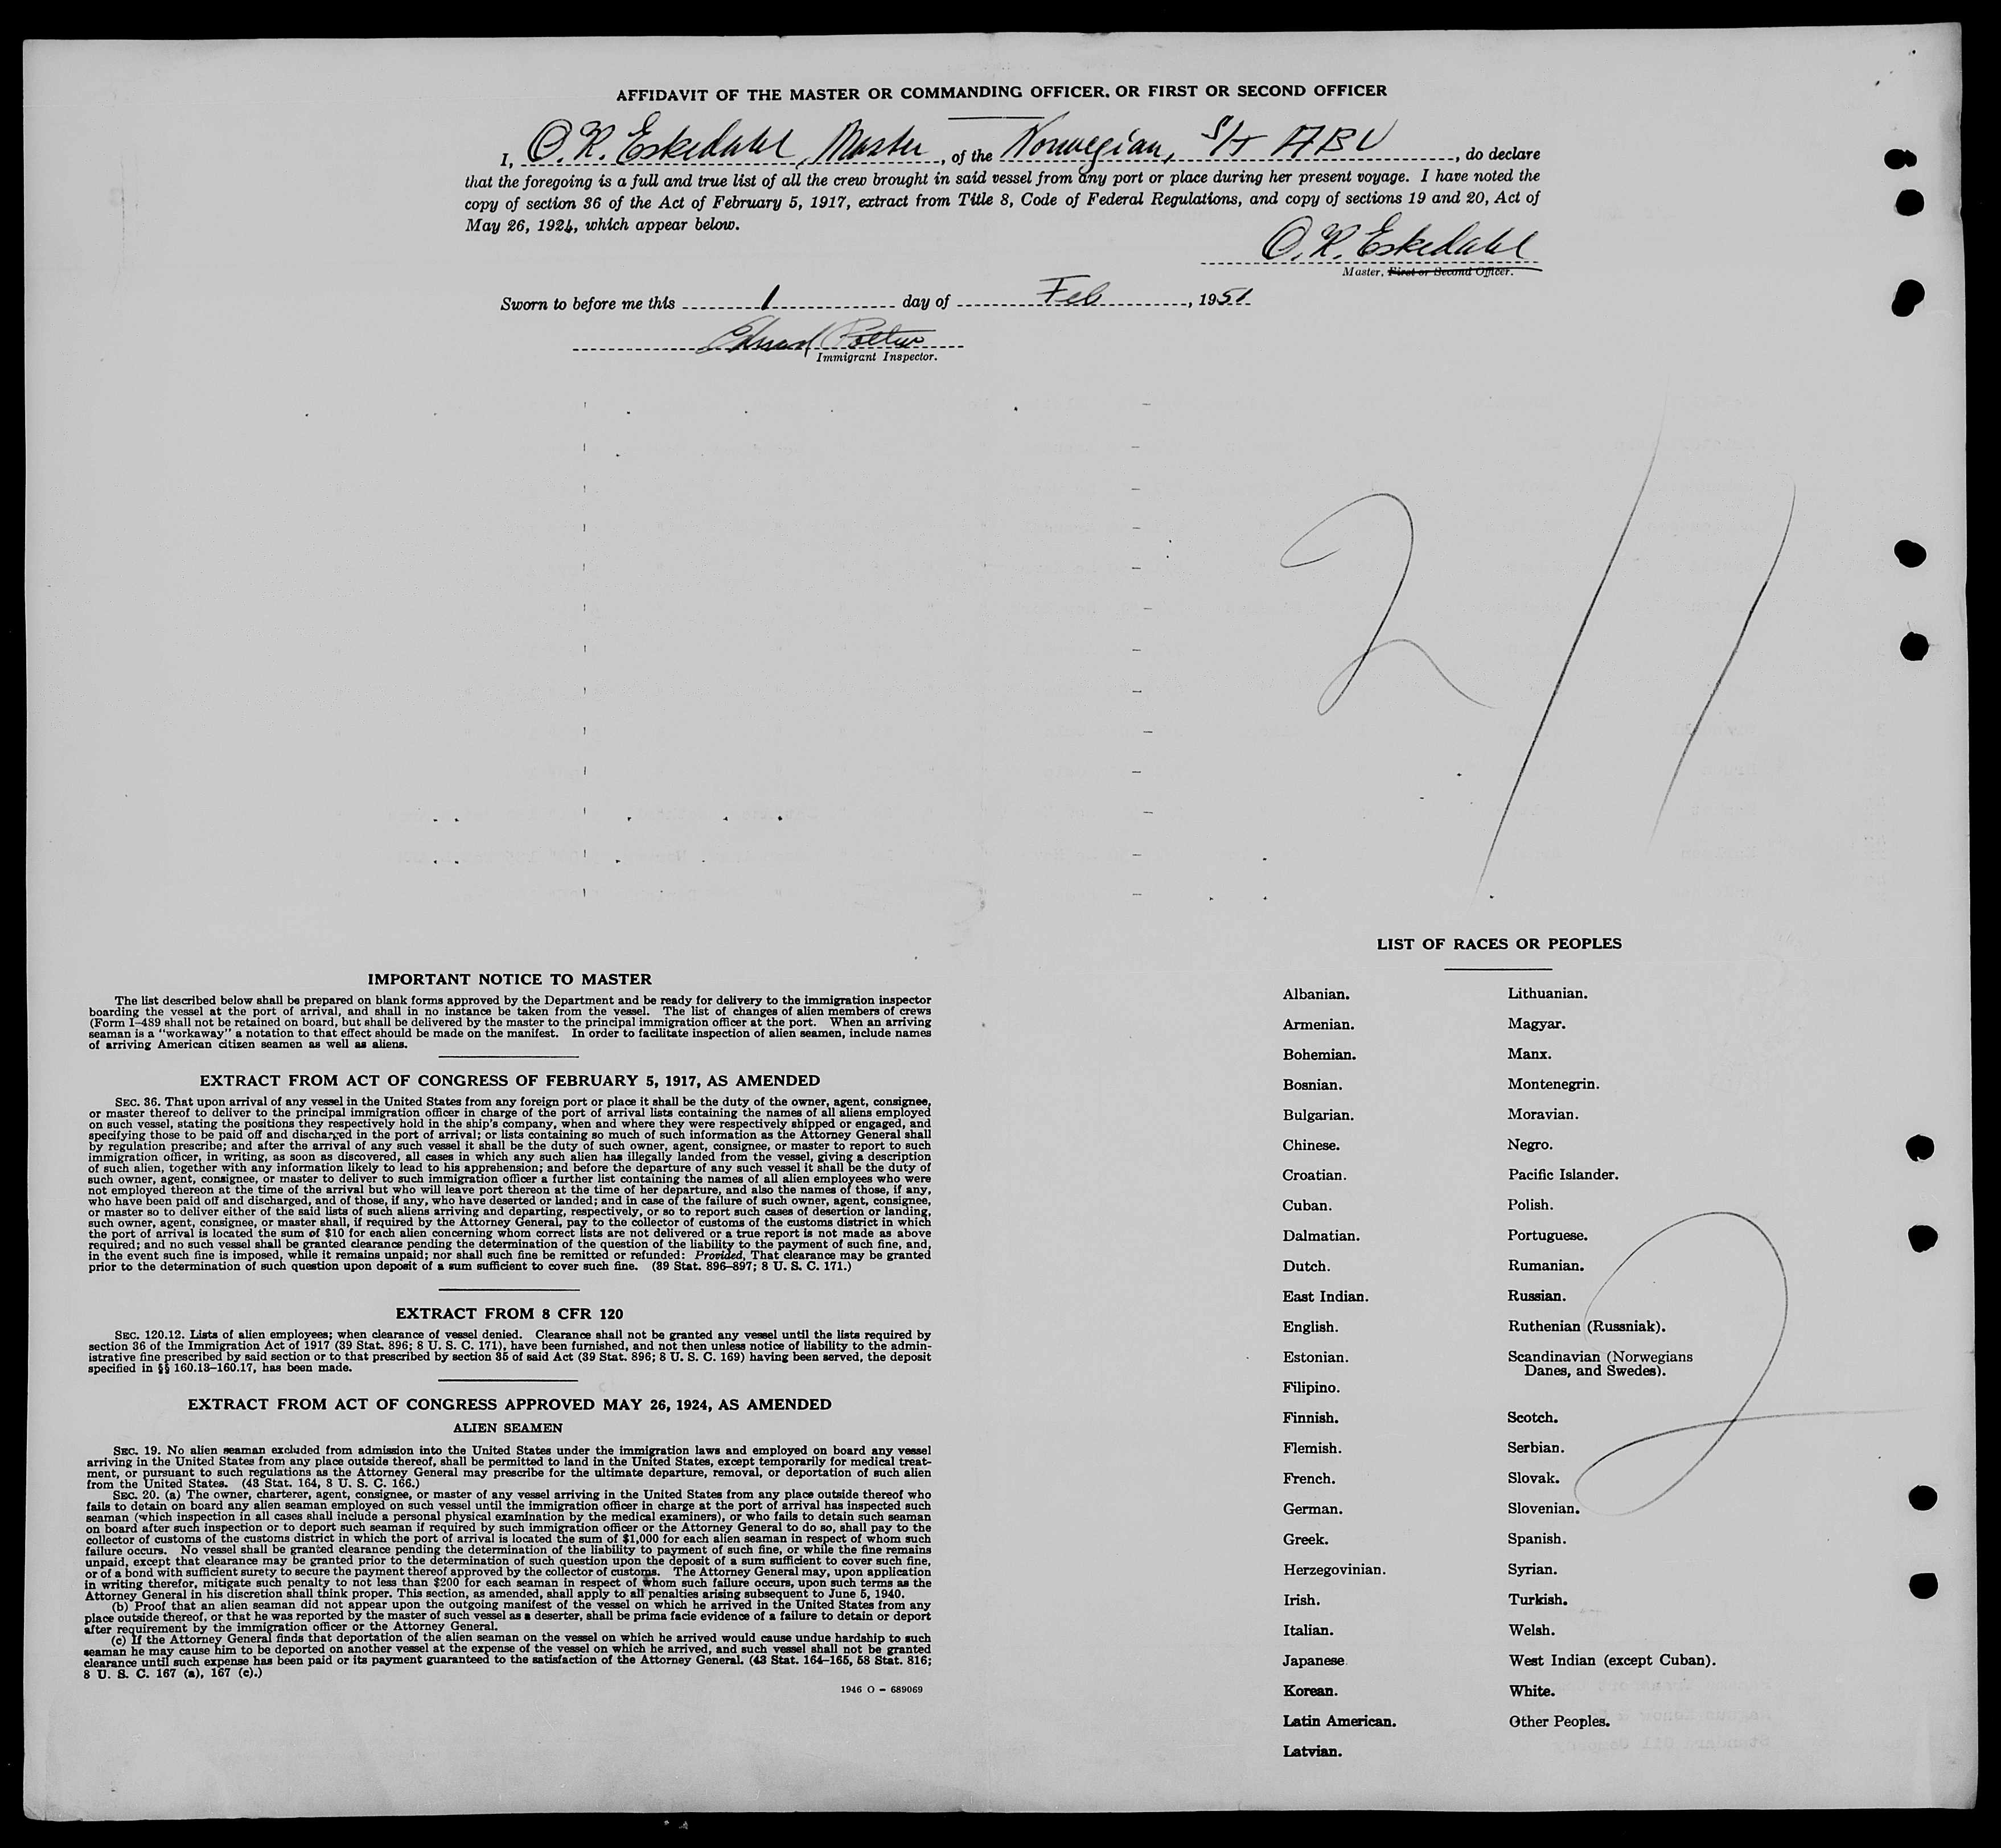 AFFIDAVIT OF THE MASTER OR COMMANDING OFFICER, OR FIRST OR SECOND OFFICER
I, O.K. Eskedahl, Master, of the Norwegian, S/T ABU, do declare
that the foregoing is a full and true list of all the crew brought in said vessel from any port or place during her present voyage. I have noted the
copy of section 36 of the Act of February 5, 1917, extract from Title 8, Code of Federal Regulations, and copy of sections 19 and 20, Act of
May 26, 1924, which appear below.
O.K. Eskedahl
Master, First or Second Officer.
Sworn to before me this 1 day of Feb, 1951
Immigrant Inspector.
2/1
IMPORTANT NOTICE TO MASTER
The list described below shall be prepared on blank forms approved by the Department and be ready for delivery to the immigration inspector
boarding the vessel at the port of arrival, and shall in no instance be taken from the vessel. The list of changes of alien members of crews
(Form I-489 shall not be retained on board, but shall be delivered by the master to the principal immigration officer at the port. When an arriving
seaman is a "workaway" a notation to that effect should be made on the manifest. In order to facilitate inspection of alien seamen, include names
of arriving American citizen seamen as well as aliens.
EXTRACT FROM ACT OF CONGRESS OF FEBRUARY 5, 1917, AS AMENDED
SEC. 36. That upon arrival of any vessel in the United States from any foreign port or place it shall be the duty of the owner, agent, consignee,
or master thereof to deliver to the principal immigration officer in charge of the port of arrival lists containing the names of all aliens employed
on such vessel, stating the positions they respectively hold in the ship's company, when and where they were respectively shipped or engaged, and
specifying those to be paid off and discharged in the port of arrival; or lists containing so much of such information as the Attorney General shall
by regulation prescribe; and after the arrival of any such vessel it shall be the duty of such owner, agent, consignee, or master to report to such
immigration officer, in writing, as soon as discovered, all cases in which any such alien has illegally landed from the vessel, giving a description
of such alien, together with any information likely to lead to his apprehension; and before the departure of any such vessel it shall be the duty of
such owner, agent, consignee, or master to deliver to such immigration officer a further list containing the names of all alien employees who were
not employed thereon at the time of the arrival but who will leave port thereon at the time of her departure, and also the names of those, if any,
who have been paid off and discharged, and of those, if any, who have deserted or landed; and in case of the failure of such owner, agent, consignee,
or master so to deliver either of the said lists of such aliens arriving and departing, respectively, or so to report such cases of desertion or landing,
such owner, agent, consignee, or master shall, if required by the Attorney General, pay to the collector of customs of the customs district in which
the port of arrival is located the sum of $10 for each alien concerning whom correct lists are not delivered or a true report is not made as above
required; and no such vessel shall be granted clearance pending the determination of the question of the liability to the payment of such fine, and,
in the event such fine is imposed, while it remains unpaid; nor shall such fine be remitted or refunded: Provided, That clearance may be granted
prior to the determination of such question upon deposit of a sum sufficient to cover such fine. (39 Stat. 896-897; 8 U. S. C. 171.)
EXTRACT FROM 8 CFR 120
SEC. 120.12. Lists of alien employees; when clearance of vessel denied. Clearance shall not be granted any vessel until the lists required by
section 36 of the Immigration Act of 1917 (39 Stat. 896; 8 U. S. C. 171), have been furnished, and not then unless notice of liability to the admin-
istrative fine prescribed by said section or to that prescribed by section 35 of said Act (39 Stat. 896; 8 U. S. C. 169) having been served, the deposit
specified in §§ 160.13-160.17, has been made.
EXTRACT FROM ACT OF CONGRESS APPROVED MAY 26, 1924, AS AMENDED
ALIEN SEAMEN
SEC. 19. No alien seaman excluded from admission into the United States under the immigration laws and employed on board any vessel
arriving in the United States from any place outside thereof, shall be permitted to land in the United States, except temporarily for medical treat-
ment, or pursuant to such regulations as the Attorney General may prescribe for the ultimate departure, removal, or deportation of such alien
from the United States. (43 Stat. 164, 8 U. S. C. 166.)
SEC. 20. (a) The owner, charterer, agent, consignee, or master of any vessel arriving in the United States from any place outside thereof who
fails to detain on board any alien seaman employed on such vessel until the immigration officer in charge at the port of arrival has inspected such
seaman (which inspection in all cases shall include a personal physical examination by the medical examiners), or who fails to detain such seaman
on board after such inspection or to deport such seaman if required by such immigration officer or the Attorney General to do so, shall pay to the
collector of customs of the customs district in which the port of arrival is located the sum of $1,000 for each alien seaman in respect of whom such
failure occurs. No vessel shall be granted clearance pending the determination of the liability to payment of such fine, or while the fine remains
unpaid, except that clearance may be granted prior to the determination of such question upon the deposit of a sum sufficient to cover such fine,
or of a bond with sufficient surety to secure the payment thereof approved by the collector of customs. The Attorney General may, upon application
in writing therefor, mitigate such penalty to not less than $200 for each seaman in respect of whom such failure occurs, upon such terms as the
Attorney General in his discretion shall think proper. This section, as amended, shall apply to all penalties arising subsequent to June 5, 1940.
(b) Proof that an alien seaman did not appear upon the outgoing manifest of the vessel on which he arrived in the United States from any
place outside thereof, or that he was reported by the master of such vessel as a deserter, shall be prima facie evidence of a failure to detain or deport
after requirement by the immigration officer or the Attorney General.
(c) If the Attorney General finds that deportation of the alien seaman on the vessel on which he arrived would cause undue hardship to such
seaman he may cause him to be deported on another vessel at the expense of the vessel on which he arrived, and such vessel shall not be granted
clearance until such expense has been paid or its payment guaranteed to the satisfaction of the Attorney General. (43 Stat. 164-165, 58 Stat. 816;
8 U. S. C. 167 (a), 167 (c).)
1946 O - 689069
LIST OF RACES OR PEOPLES
Albanian.
Armenian.
Bohemian.
Bosnian.
Bulgarian.
Chinese.
Croatian.
Cuban.
Dalmatian.
Dutch.
East Indian.
English.
Estonian.
Filipino.
Finnish.
Flemish.
French.
German.
Greek.
Herzegovinian.
Irish.
Italian.
Japanese
Korean.
Latin American.
Latvian.
Lithuanian.
Magyar.
Manx.
Montenegrin.
Moravian.
Negro.
Pacific Islander.
Polish.
Portuguese.
Rumanian.
Russian.
Ruthenian (Russniak).
Scandinavian (Norwegians
Danes, and Swedes).
Scotch.
Serbian.
Slovak.
Slovenian.
Spanish.
Syrian.
Turkish.
Welsh.
West Indian (except Cuban).
White.
Other Peoples.
2